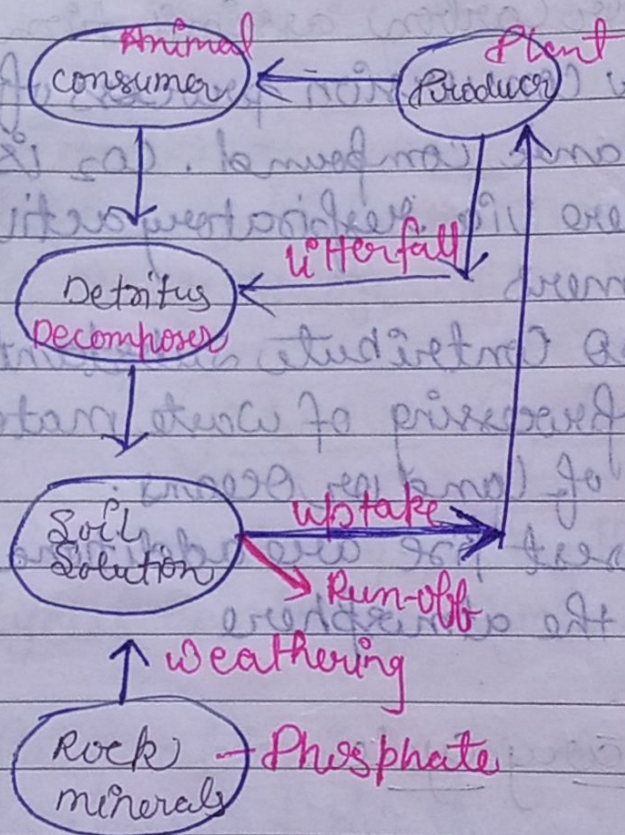 Animal
Consumer
Plant
Producer
Litterfall
Detritus
Decomposer
Soil
Solution
uptake
Run-off
weathering
Rock
minerals
Phosphate